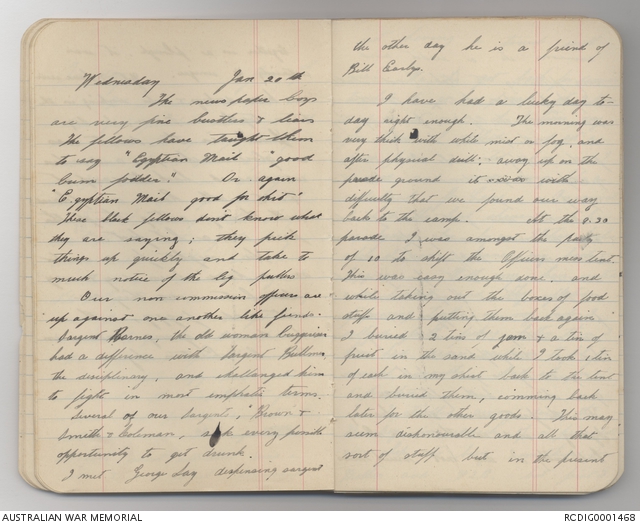 Wednesday Jan 20th
The news paper boys
are very fine
The fellows have taught them
to say "Egyptian Mail" "good
bum fodder" Or again
"Egyptian Mail good for shit"
These black fellows don't know what
they are saying; they pick
things up quickly and take to
much notice of the leg pullers
Our non commission officers are
up against one another like fiends.
Sargent Barnes, the old woman
had a difference with Sargent
the disciplinary, and challanged him
to fight in most emphatic terms.
Several of our Sargents, Brown &
Smith & Coleman, seek every possible
opportunity to get drunk.
I met George Lay dispensing sargent
the other day he is a friend of
Bill Earlys.
I have had a lucky day to-
day right enough. The morning was
very thick with white mist or fog, and
after physical drill; away up on the
parade ground it with
difficulty that we found our way
back to the camp. At the 9.30
parade I was amongst the party
of 10 to shift the Officers mess tent
This was easy enough done. and
while taking out the boxes of food
stuff and putting them back again
I buried 2 tins of jam & a tin of
fruit in the sand while I took 1 tin
of each in my shirt back to the tent
and buried them, comming back
later for the other goods. This may
seem dishonourable and all that
sort of stuff but in the present
AUSTRALIAN WAR MEMORIAL
RCDIG0001468